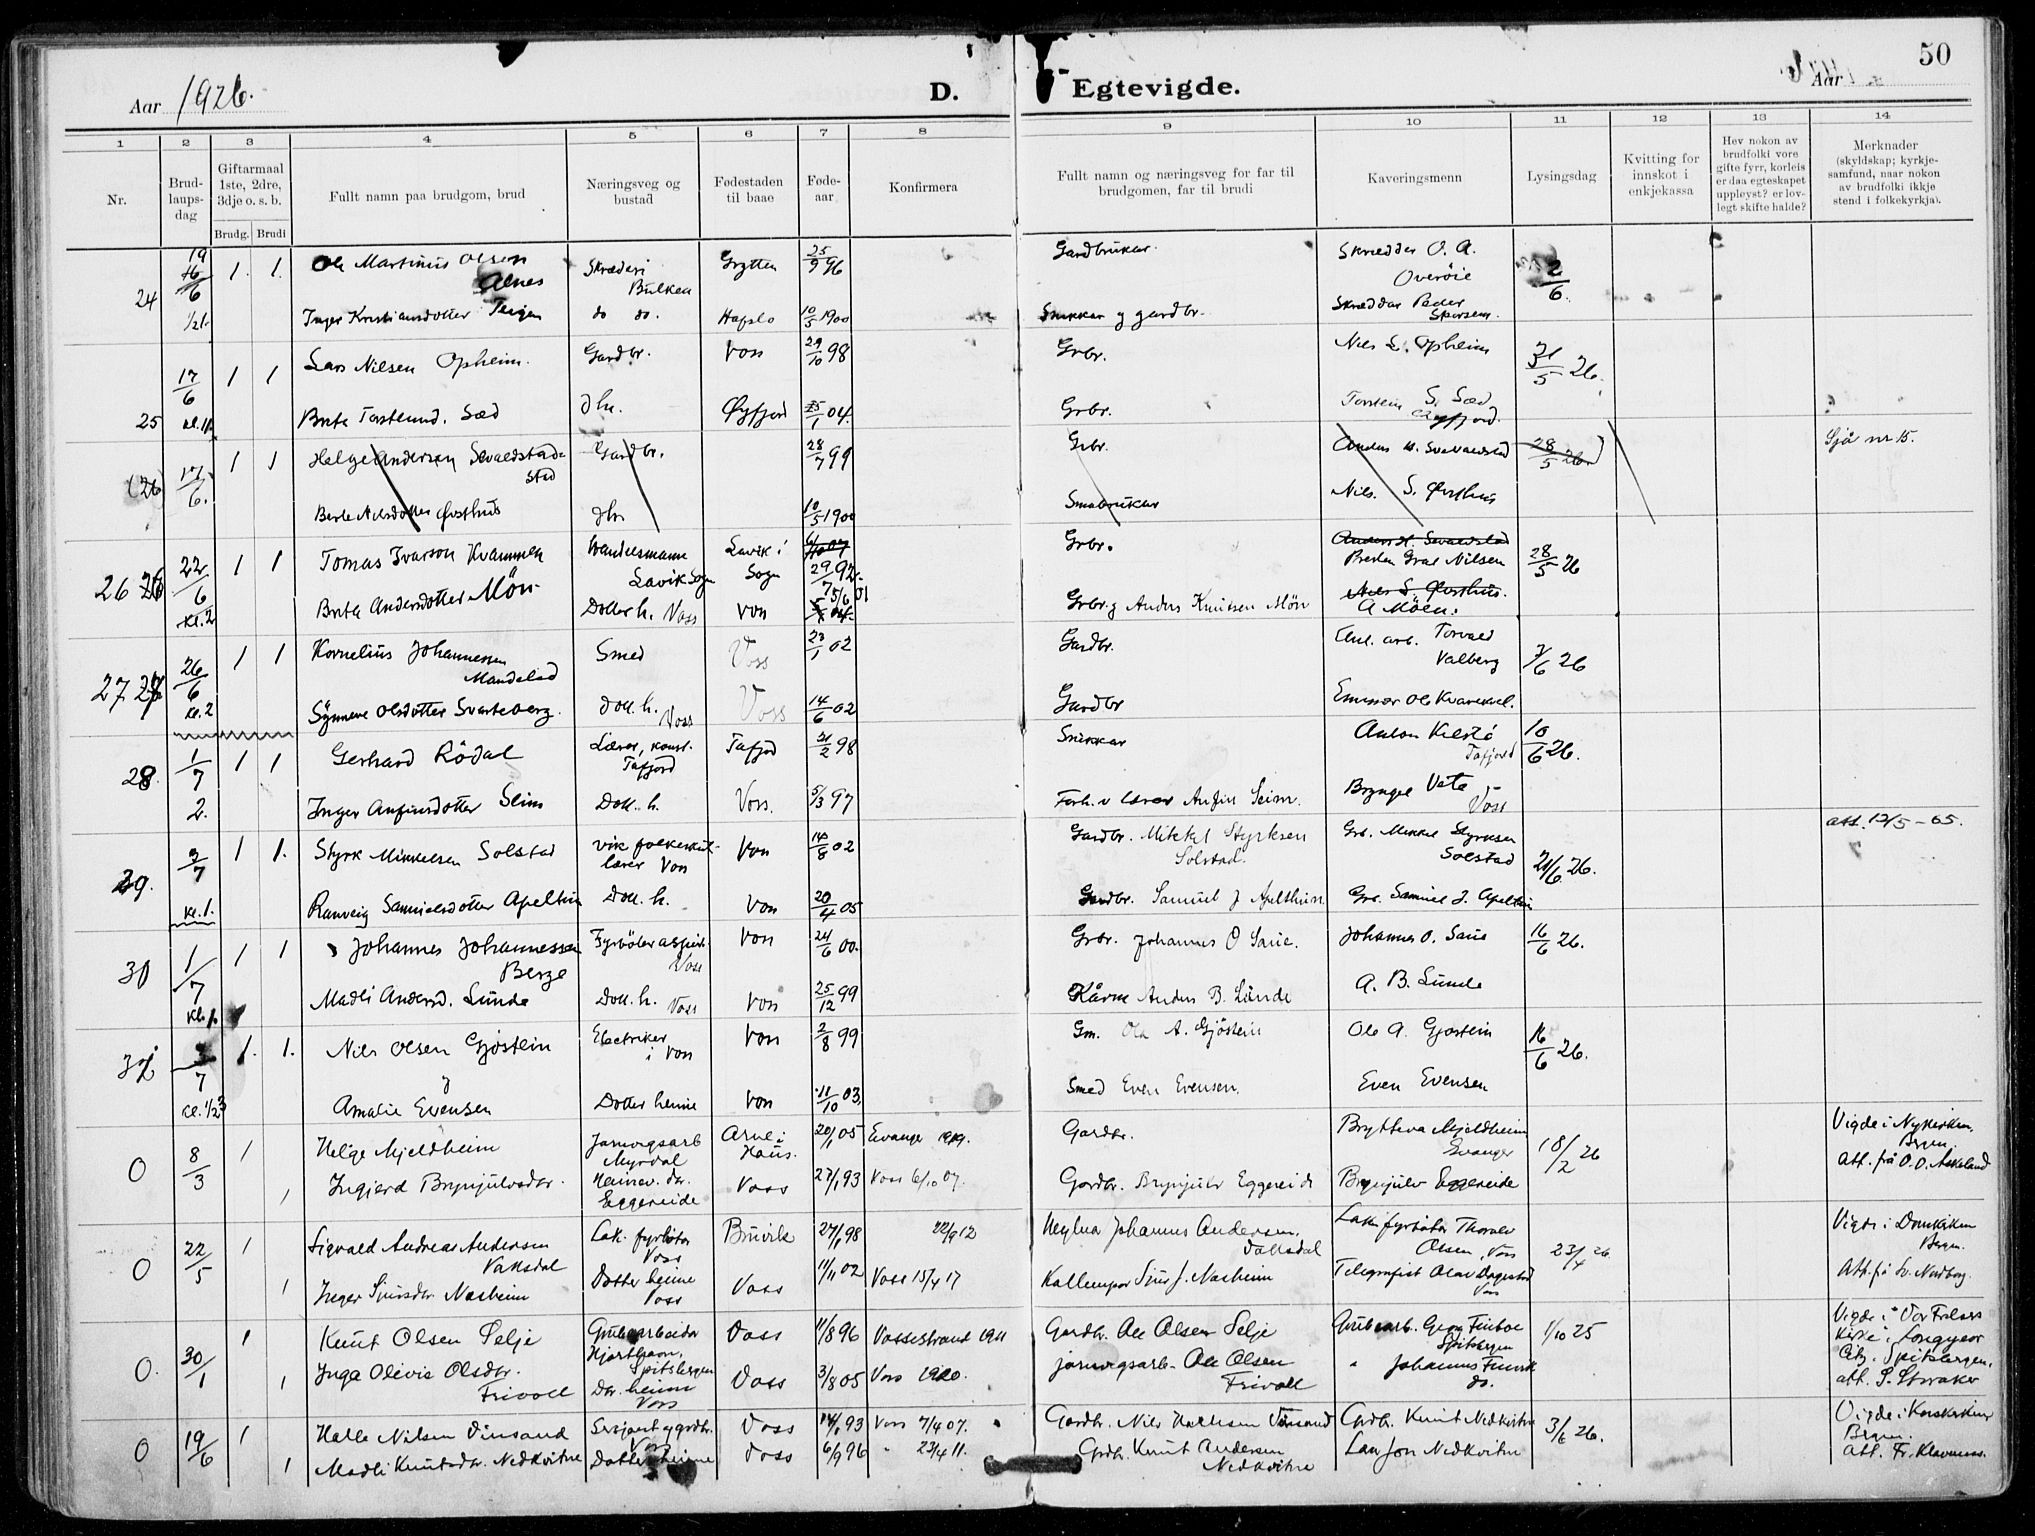 Aar 1926. D. Egtevigde. Aar 50
1 2 3 4 5 6 7 8 9 10 11 12 13 14
Nr. Brudlaupsdag Giftarmaal 1ste, 2dre, 3dje o. s. b. Brudg. Brudi Fullt namn paa brudgom, brud Næringsveg og bustad Fødestaden til baae Fødeaar Konfirmera Fullt namn og næringsveg for far til brudgomen, far til brudi Kaveringsmenn Lysingsdag Kvitting for innskot i enkjekassa Hev nokon av brudfolki vore gifte fyrr, korleis er daa egteskapet uppløyst? er lovlegt skifte halde? Merknader (skyldskap; kyrkjesamfund, naar nokon av brudfolki ikkje stend i folkekyrkja).
24 19/6 1. 1. Ole Martinus Olsen Alnes Skræderi Bulken Grytten 25/9 96 Gardbrukar. Skrædder O. A. Overöie 2/6.
Inger Kristiansdotter Teigen do do. Hafslo 10/5 1900 Snikkar og gardbr. Skræddar Peder
25 17/6 1 1 Lars Nilsen Opheim. Gardbr. Voss 29/10 98 Grbr. Nils L. Opheim 31/5 26.
Brita Torsteinsd. Sæd dhr. Øyfjord 25/1 04. Grbr. Torstein S. Sæd Øyfjord.
(26) 17/6. 1 1 Helge Andersen Sevaldstad Gardbr. 28/7 99 Grbr. Anders H. Sevaldstad 28/5 26. Sjå nr 15.
Berta Nilsdotter Qvsthus dhr 10/5 1900 Smabrukar Nils. S. Qvsthus
26 22/6 kl. 2 1 1 Tomas Ivarson Kvammen Handelsmann Lavik Sogn Lavik i Sogn 29/7 92. Grbr. Anders H. Sevaldstad Presten Grae Nilsen 28/5 26
Brita Andersdotter Mön Dotter h. Voss Voss 5/6 01 Grbr. Anders Knutsen Mön A Möen.
27 26/6 kl. 2 1 1 Kornelius Johannessen Mandelid Smed Voss 23/1 02 Gardbr. Anl. arb. Torvald Valberg 7/6 26
Synneve Olsdotter Svarteberg. Dott. h. Voss Voss 14/6 02 Gardbr Emissær Ole Kvarekval.
28. 1/7 2. 1 1 Gerhard Rödal Lærer, konst. Tafjord Tafjord 21/2 98 Snikkar Anton Kilstö Tafjord 10/6 26.
Inger Anfinsdotter Seim Dott. h. Voss. 5/3 97 Forh. v lærer Anfin Seim. Brynjel Vete Voss
29. 3/7 kl. 1. 1 1. Styrk Mikkelsen Solstad Vik folkeskul-lærer Voss Voss 14/8 02 Gardbr. Mikkel Styrksen Solstad. Grb. Mikkel Styrksen Solstad 21/6 26. att. 12/5-65.
Ranveig Samuelsdotter Apeltun Dott. h. Voss 20/4 05 Gardbr. Samuel J Apelthun Grb. Samuel J. Apeltun
30 1/7 1 1 Johannes Johannessen Berge Fyrböteraspir. Voss Voss 24/6 00. Grbr. Johannes O Saue. Johannes O. Saue 16/6 26.
Madli Andersd. Lunde Dott. h. Voss Voss 25/12 99 Kårm Anders B. Lunde A. B. Lunde
31 3/7 kl. 1/2 3 1. 1. Nils Olsen Gjøstein Electriker i Voss Voss 2/8 99 Gm. Ola A. Gjöstein Ole A. Gjøstein 16/6 26.
Amalie Evensen Dotter heime Voss 11/10 03. Smed Even Evensen. Even Evensen
0 8/3 1 Helge Mjeldheim Jarnvegsarb Myrdal Arne i Haus. 20/1 05 Evanger 1919. Gardbr. Brytteva Mjeldheim Evanger 18/2 26 Vigde i Nykirken, Bergen. Att. frå O. O. Askeland
1 Ingjerd Brynjulvsdtr. Heimev. dtr. Eggereide Voss 27/1 93 Voss 6/10 07. Gardbr. Brynjulv Eggereide Brynjulv Eggereide
0 22/5 1 Sigvald Andreas Andersen Vaksdal Lok. fyrböter Voss Bruvik 27/1 98 22/9 12 Møylna Johannes Andersen. Vaksdal Lok. fyrböter Thorolv Olsen, Voss 23/4 26 Vigde i Domkirken Bergen.
1 Inger Sjursdtr. Nasheim Dotter heime Voss Voss 11/11 02 Voss 15/4 17 Kallemper Sjur J. Nasheim Telegrafist Olav Dagestad Voss Att. frå Sv. Nordborg.
0. 30/1 1 Knut Olsen Selje Grubearbeider Hjorthavn, Spitsbergen Voss 11/8 96 Vossestrand 1911 Gardbr. Ole Olsen Selje Grubearb. Georg Finboe Spitsbergen 1/10 25 Vigde i Vor Frelsers Kirke i Longyear City. Spitsbergen. att. S. Storaker
1 Inga Olivie Olsdtr. Trivoll Dtr. heime Voss Voss 3/8 05 Voss 1920. jarnvegsarb. Ole Olsen Trivoll " Johannes do.
0 19/6 1 Helle Nilsen Vinsand Sersjant og grdbr. Voss Voss 14/1 93 Voss 7/4 07. Gardbr. Nils Hellesen Vinsand Grdbr. Knut Nedkvitne 3/6 26. Vigde i Korskirken Bergen. Att. Fr. Klaveness.
1 Madli Knutsdtr. Nedkvitne Dotter heime Voss 6/9 96 " 23/4 11. Grdbr. Knut Andersen Nedkvitne Lars Jon Nedkvitne